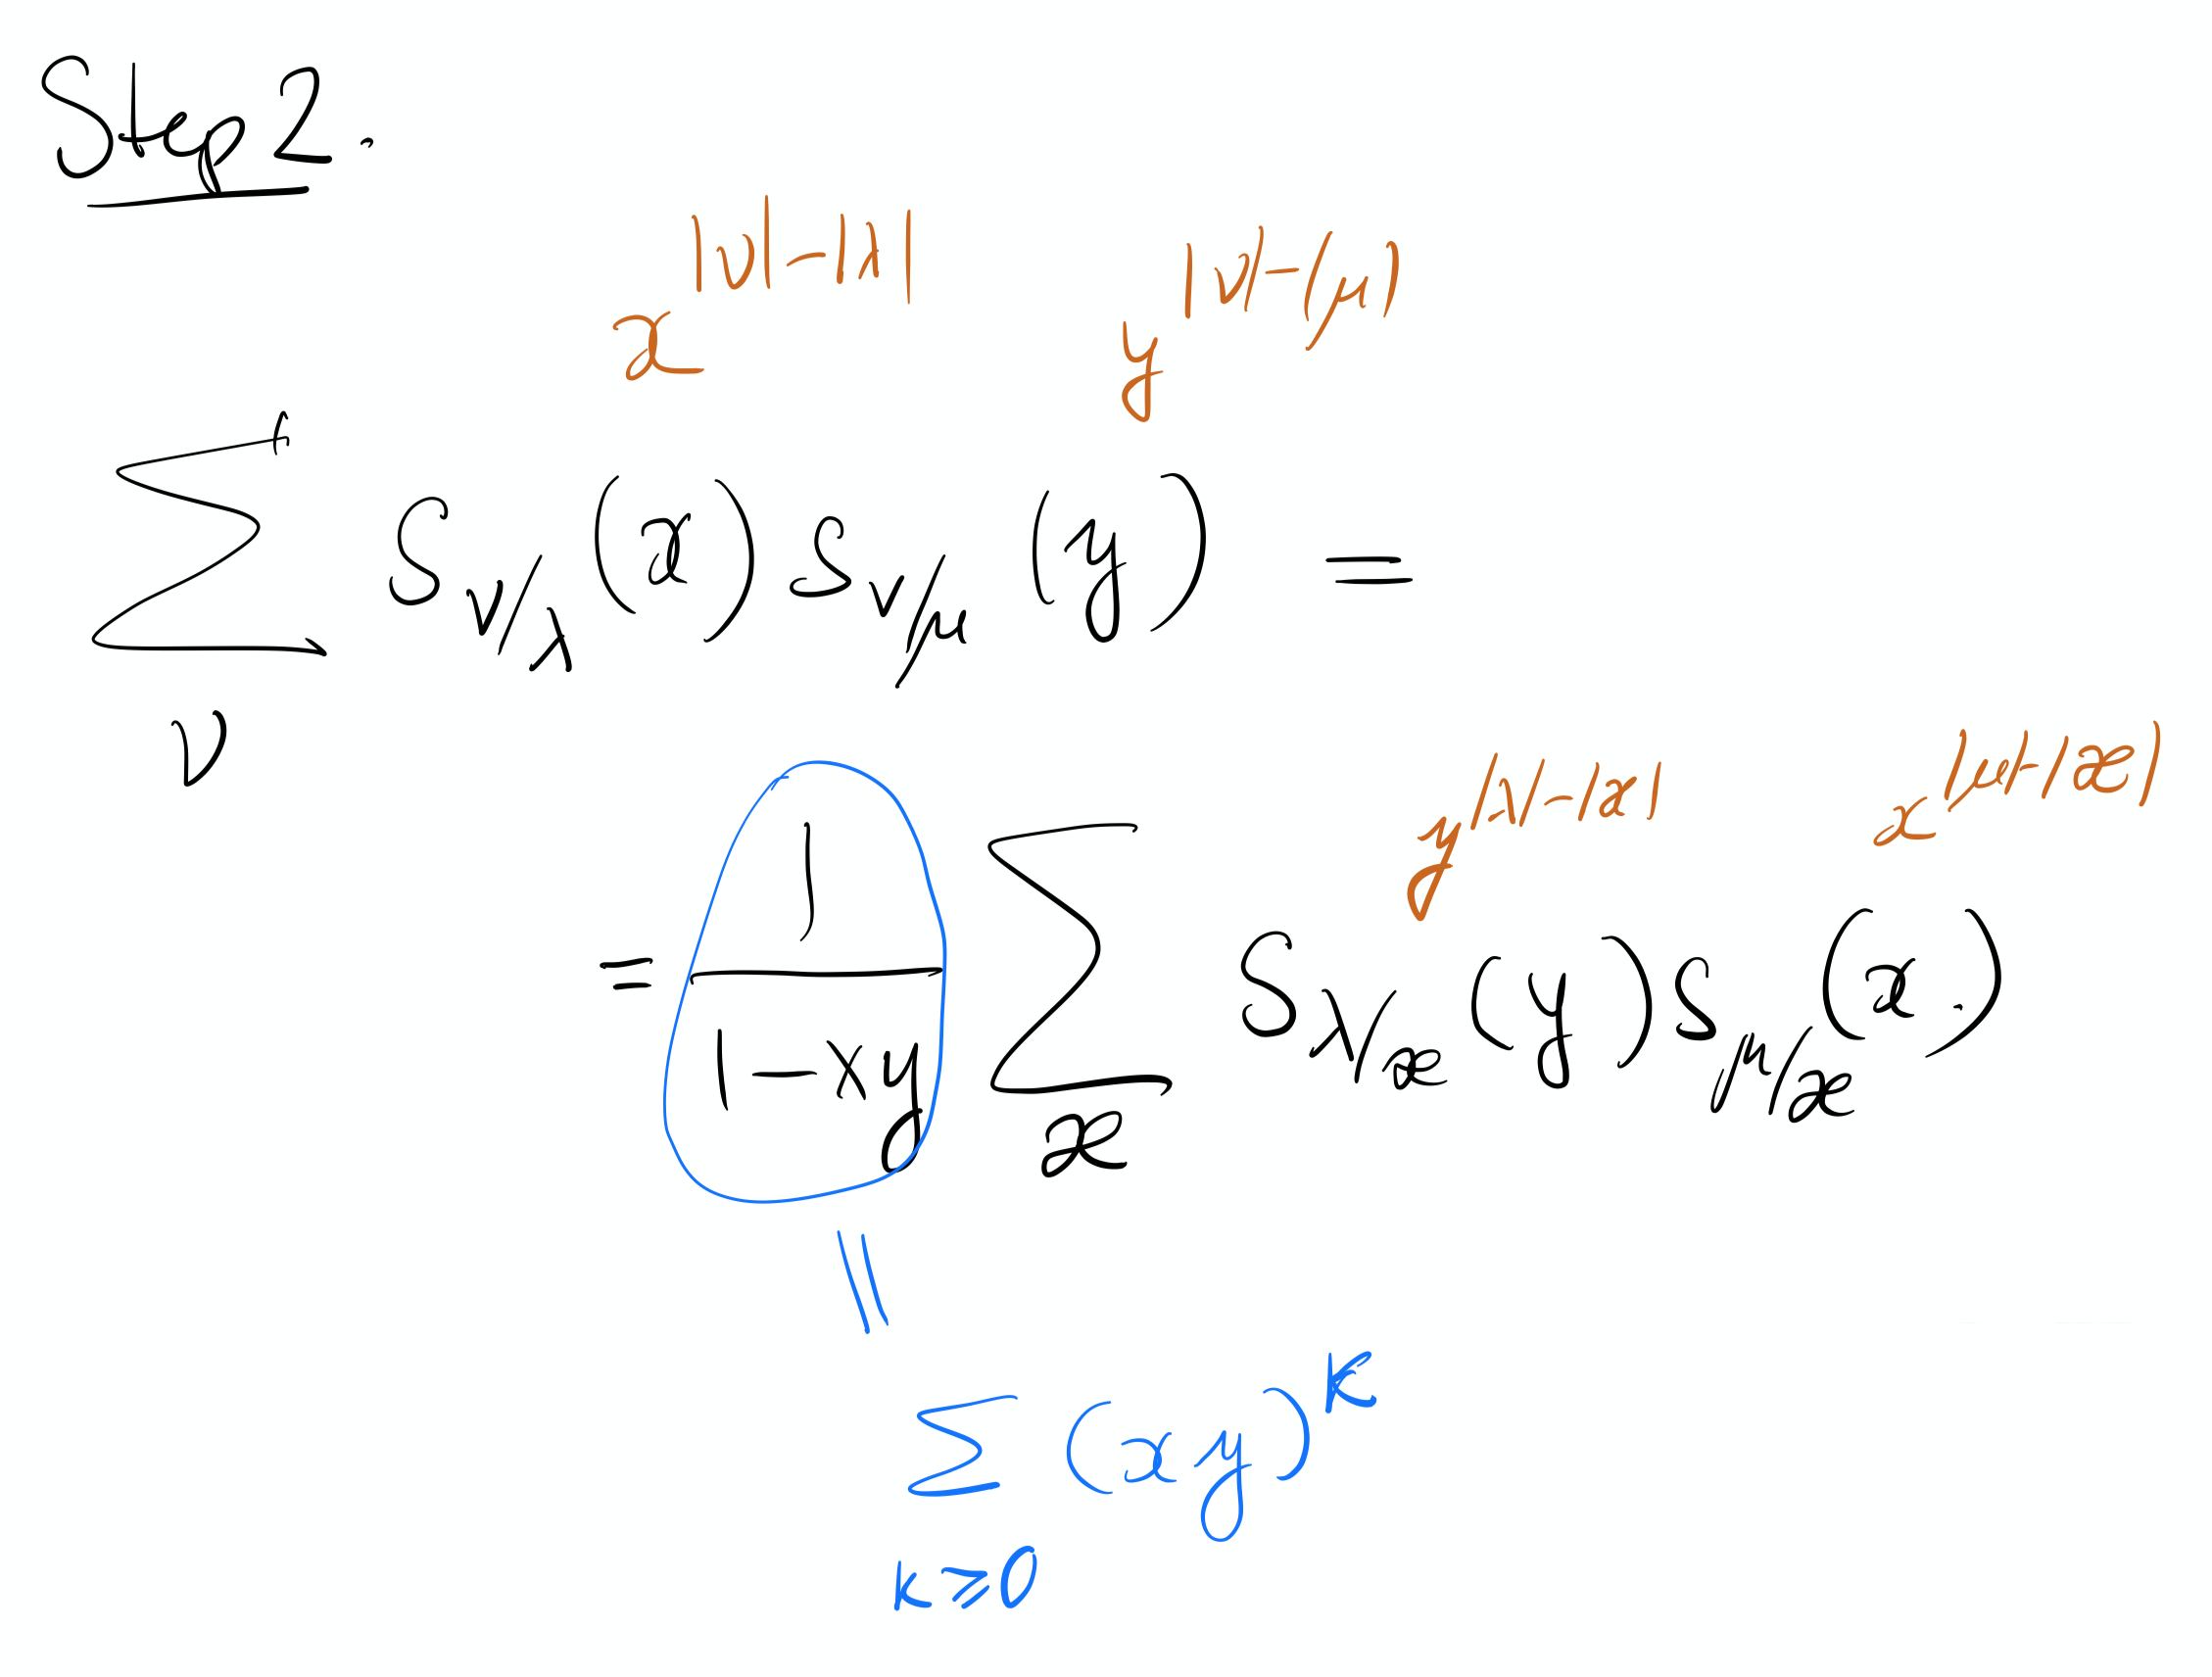 Step 2.
x^{|ν|-|λ|} y^{|ν|-|μ|}
∑_ν s_{ν/λ}(x) s_{ν/μ}(y) =
y^{|λ|-|ϰ|} x^{|μ|-|ϰ|}
= \frac{1}{1-xy} ∑_ϰ s_{λ/ϰ}(y) s_{μ/ϰ}(x)
||
∑_{k≥0} (xy)^k